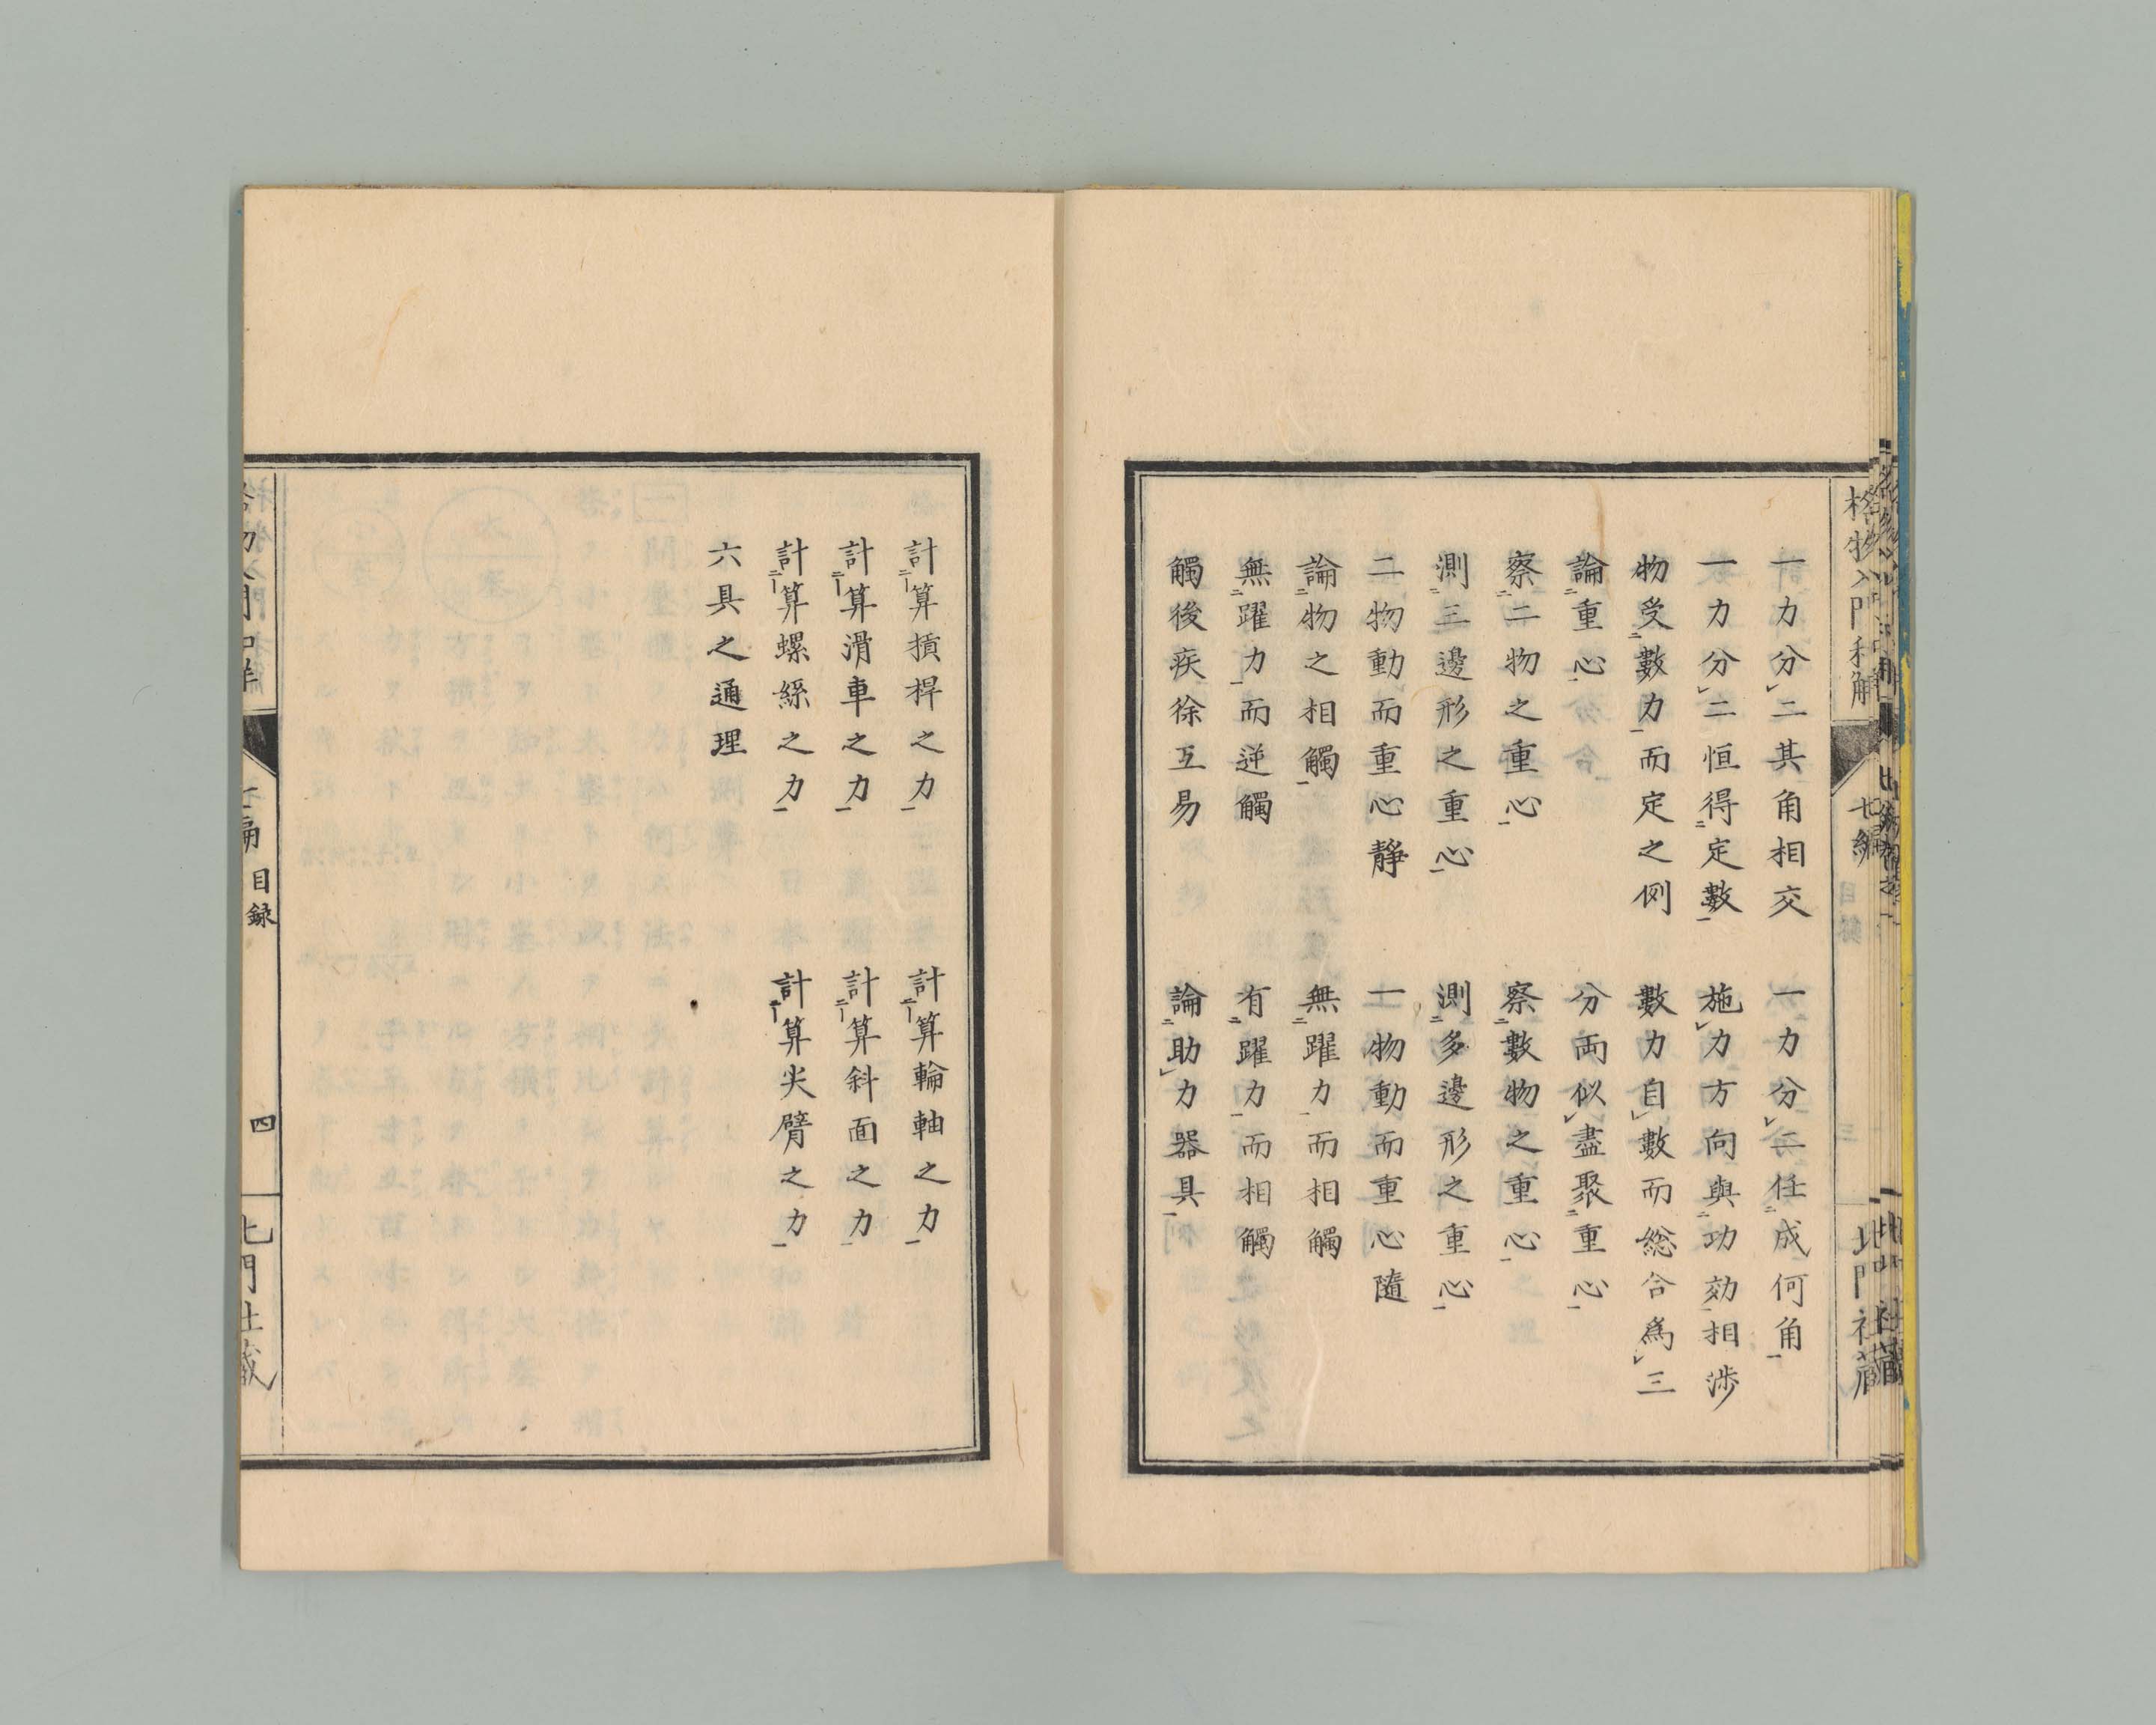 格物入門和解
七編
北門社蔵
一力分二其角相交
一力分二任成何角
一力分二恒得定數
施力方向與功効相渉
物受數力而定之例
數力自數而総合為三
論重心
分両似盡聚重心
察二物之重心
察數物之重心
測三邊形之重心
測多邊形之重心
二物動而重心靜
一物動而重心隨
論物之相觸
無躍力而相觸
無躍力而逆觸
有躍力而相觸
觸後疾徐互易
論助力器具
計算槓桿之力
計算輪軸之力
計算滑車之力
計算斜面之力
計算螺絲之力
計算尖臂之力
六具之通理
目録
四
北門社蔵